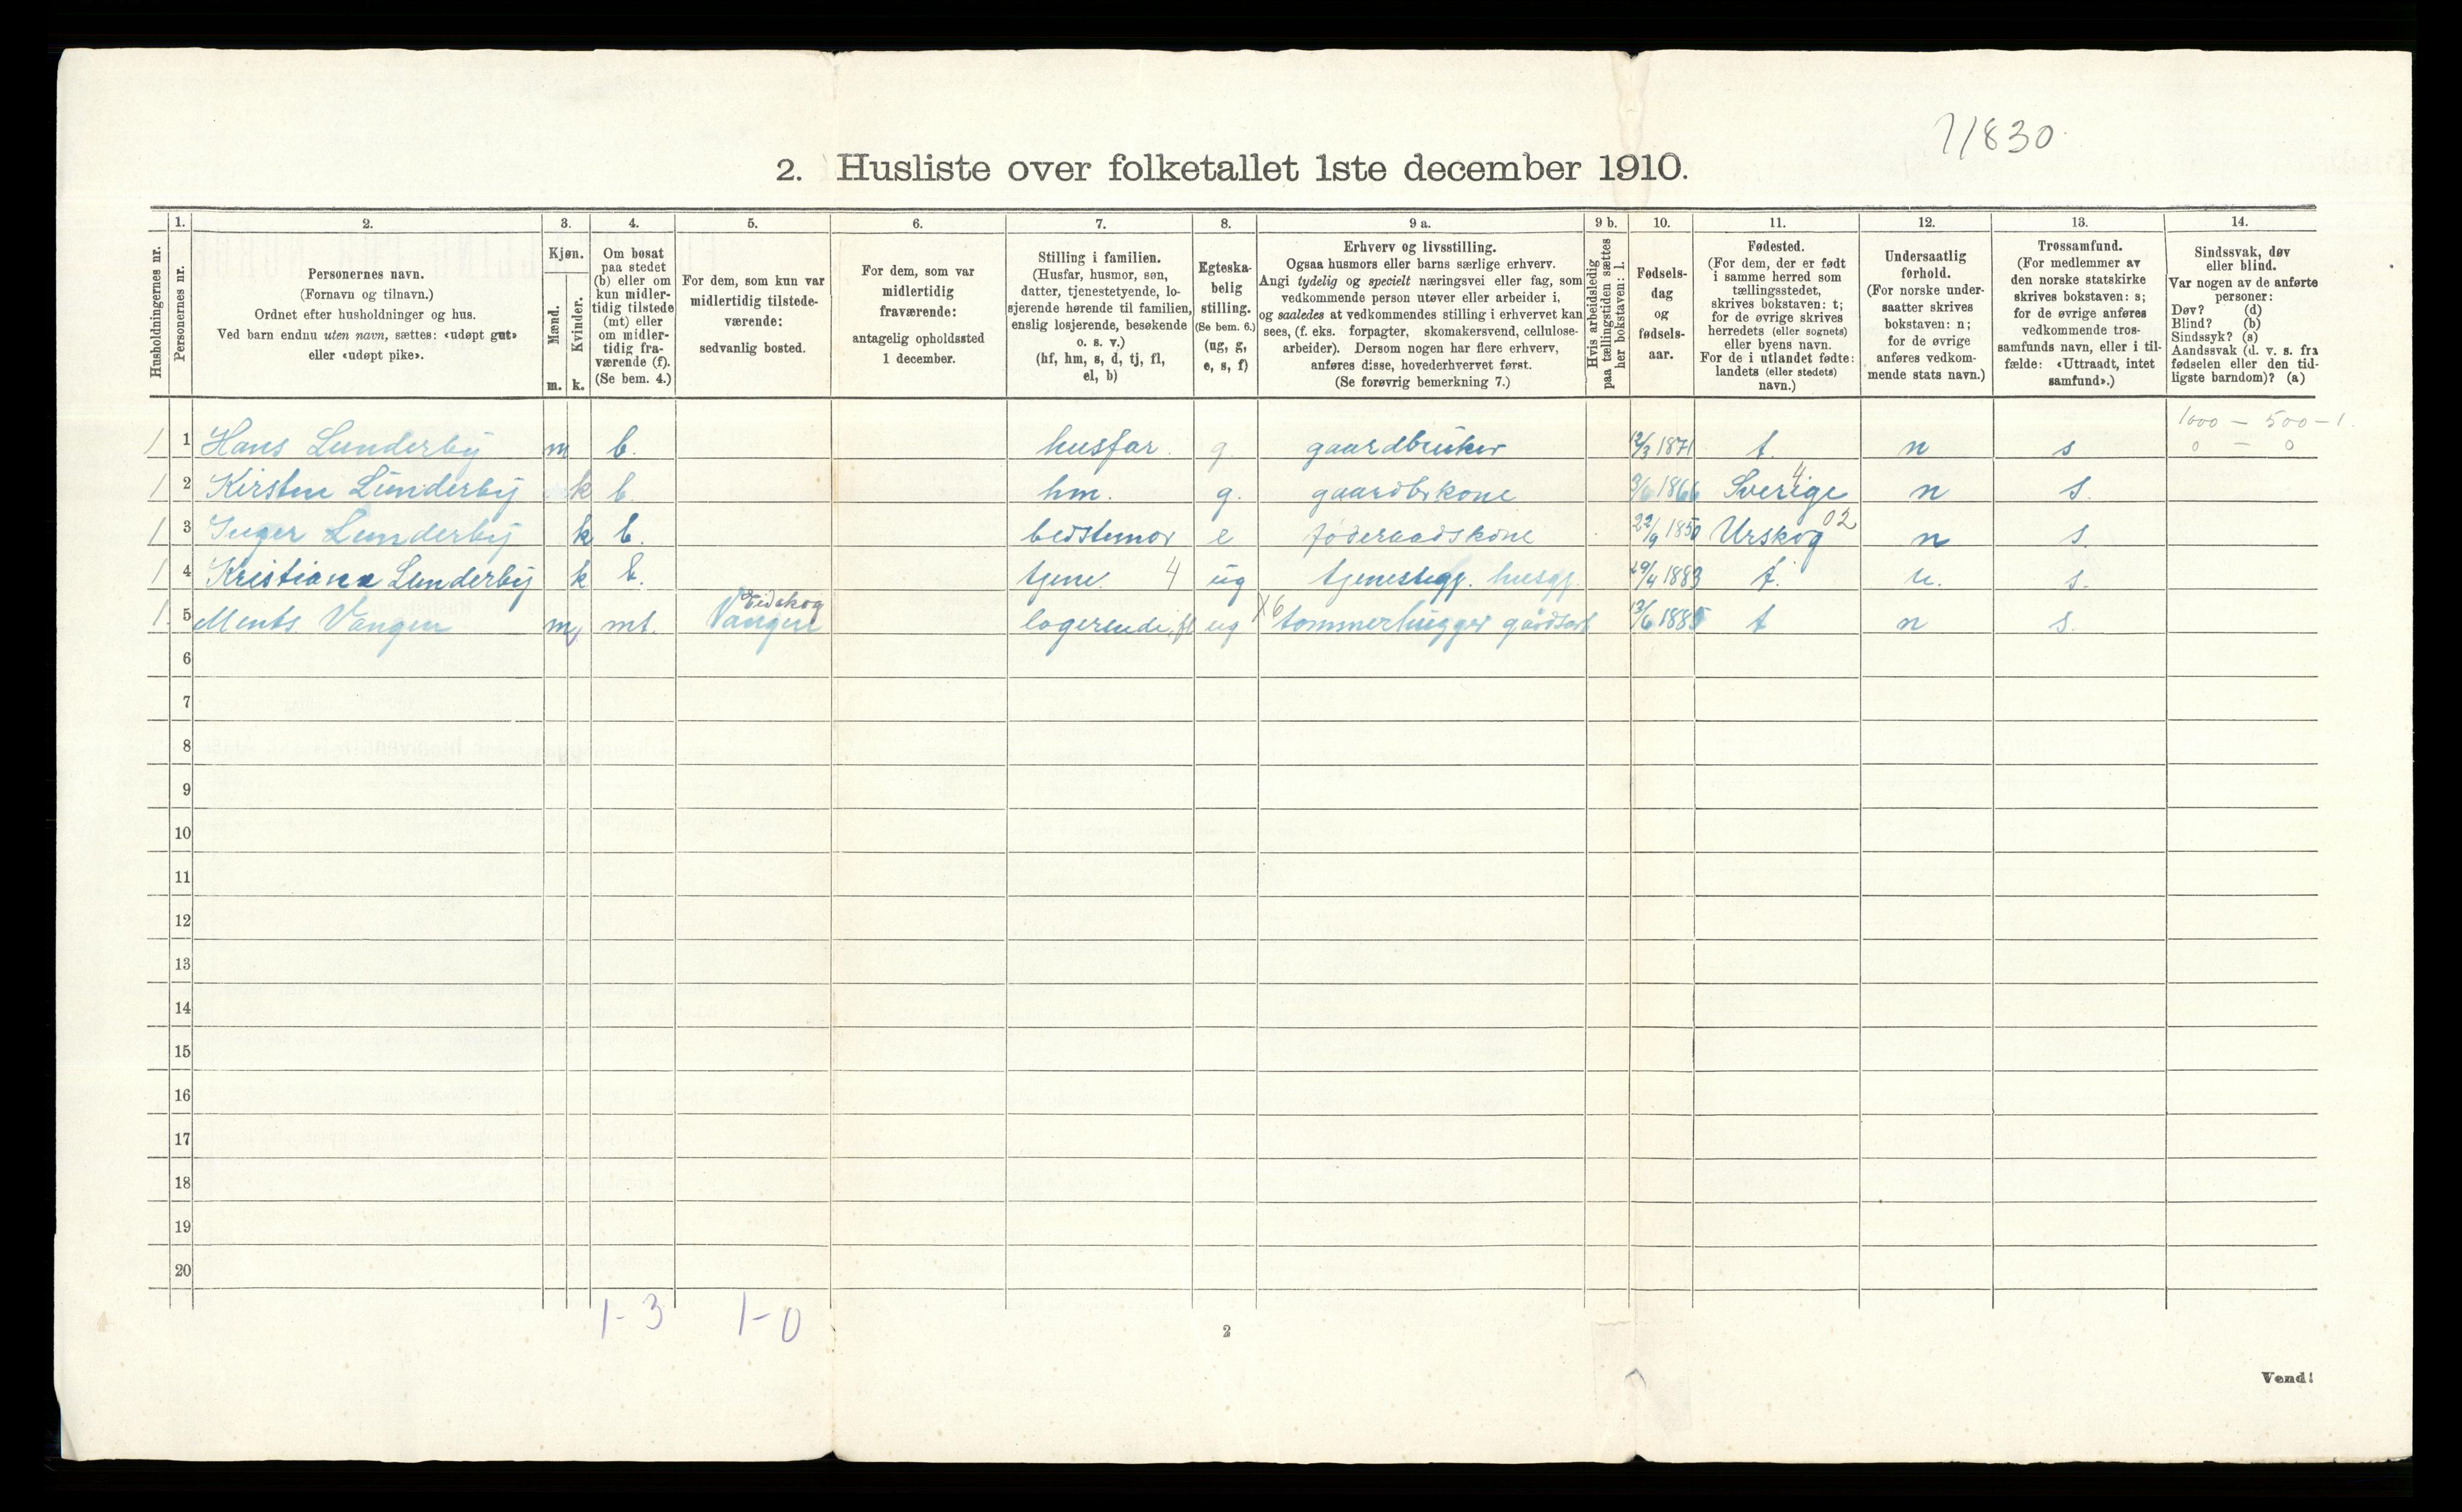 71830
2. Husliste over folketallet 1ste december 1910.
Husholdningernes nr.
1.
Personernes nr.
2.
Personernes navn.
(Fornavn og tilnavn.)
Ordnet efter husholdninger og hus.
Ved barn endnu uten navn, sættes: «udøpt gut»
eller «udøpt pike».
3.
Kjøn.
Mænd.
m.
Kvinder.
k.
4.
Om bosat
paa stedet
(b) eller om
kun midler-
tidig tilstede
(mt) eller
om midler-
tidig fra-
værende (f).
(Se bem. 4.)
5.
For dem, som kun var
midlertidig tilstede-
værende:
sedvanlig bosted.
6.
For dem, som var
midlertidig
fraværende:
antagelig opholdssted
1 december.
7.
Stilling i familien.
(Husfar, husmor, søn,
datter, tjenestetyende, lo-
sjerende hørende til familien,
enslig losjerende, besøkende
o. s. v.)
(hf, hm, s, d, tj, fl,
el, b)
8.
Egteska-
belig
stilling.
(Se bem. 6.)
(ug, g,
e, s, f)
9 a.
Erhverv og livsstilling.
Ogsaa husmors eller barns særlige erhverv.
Angi tydelig og specielt næringsvei eller fag, som
vedkommende person utøver eller arbeider i,
og saaledes at vedkommendes stilling i erhvervet kan
sees, (f. eks. forpagter, skomakersvend, cellulose-
arbeider). Dersom nogen har flere erhverv,
anføres disse, hovederhvervet først.
(Se forøvrig bemerkning 7.)
9 b.
Hvis arbeidsledig
paa tællingstiden sættes
her bokstaven: l.
10.
Fødsels-
dag
og
fødsels-
aar.
11.
Fødested.
(For dem, der er født
i samme herred som
tællingsstedet,
skrives bokstaven: t;
for de øvrige skrives
herredets (eller sognets)
eller byens navn.
For de i utlandet fødte:
landets (eller stedets)
navn.)
12.
Undersaatlig
forhold.
(For norske under-
saatter skrives
bokstaven: n;
for de øvrige
anføres vedkom-
mende stats navn.)
13.
Trossamfund.
(For medlemmer av
den norske statskirke
skrives bokstaven: s;
for de øvrige anføres
vedkommende tros-
samfunds navn, eller i til-
fælde: «Uttraadt, intet
samfund».)
14.
Sindssvak, døv
eller blind.
Var nogen av de anførte
personer:
Døv? (d)
Blind? (b)
Sindssyk? (s)
Aandssvak (d. v. s. fra
fødselen eller den tid-
ligste barndom)? (a)
1000 – 500 – 1
1 1 Hans Lunderby m b. husfar g. gaardbruker 12/3 1871 t. n s 0 – 0
1 2 Kirsten Lunderby k b. hm. g. gaardbrkone 3/6 1866 Sverige 4 n s.
1 3 Inger Lunderby k b. bedstemor e føderaadskone 22/9 1850 Urskog 02 n s.
1 4 Kristiana Lunderby k b. tjene. 4 ug tjenestegj. husgj. 29/4 1883 t. n. s.
Eidskog
1 5 Ments Vangen m mt. Vangen logerende, fl ug X6 tømmerhugger gårdsarb 13/6 1885 t n s.
6
7
8
9
10
11
12
13
14
15
16
17
18
19
20
1-3 1-0
2
Vend!